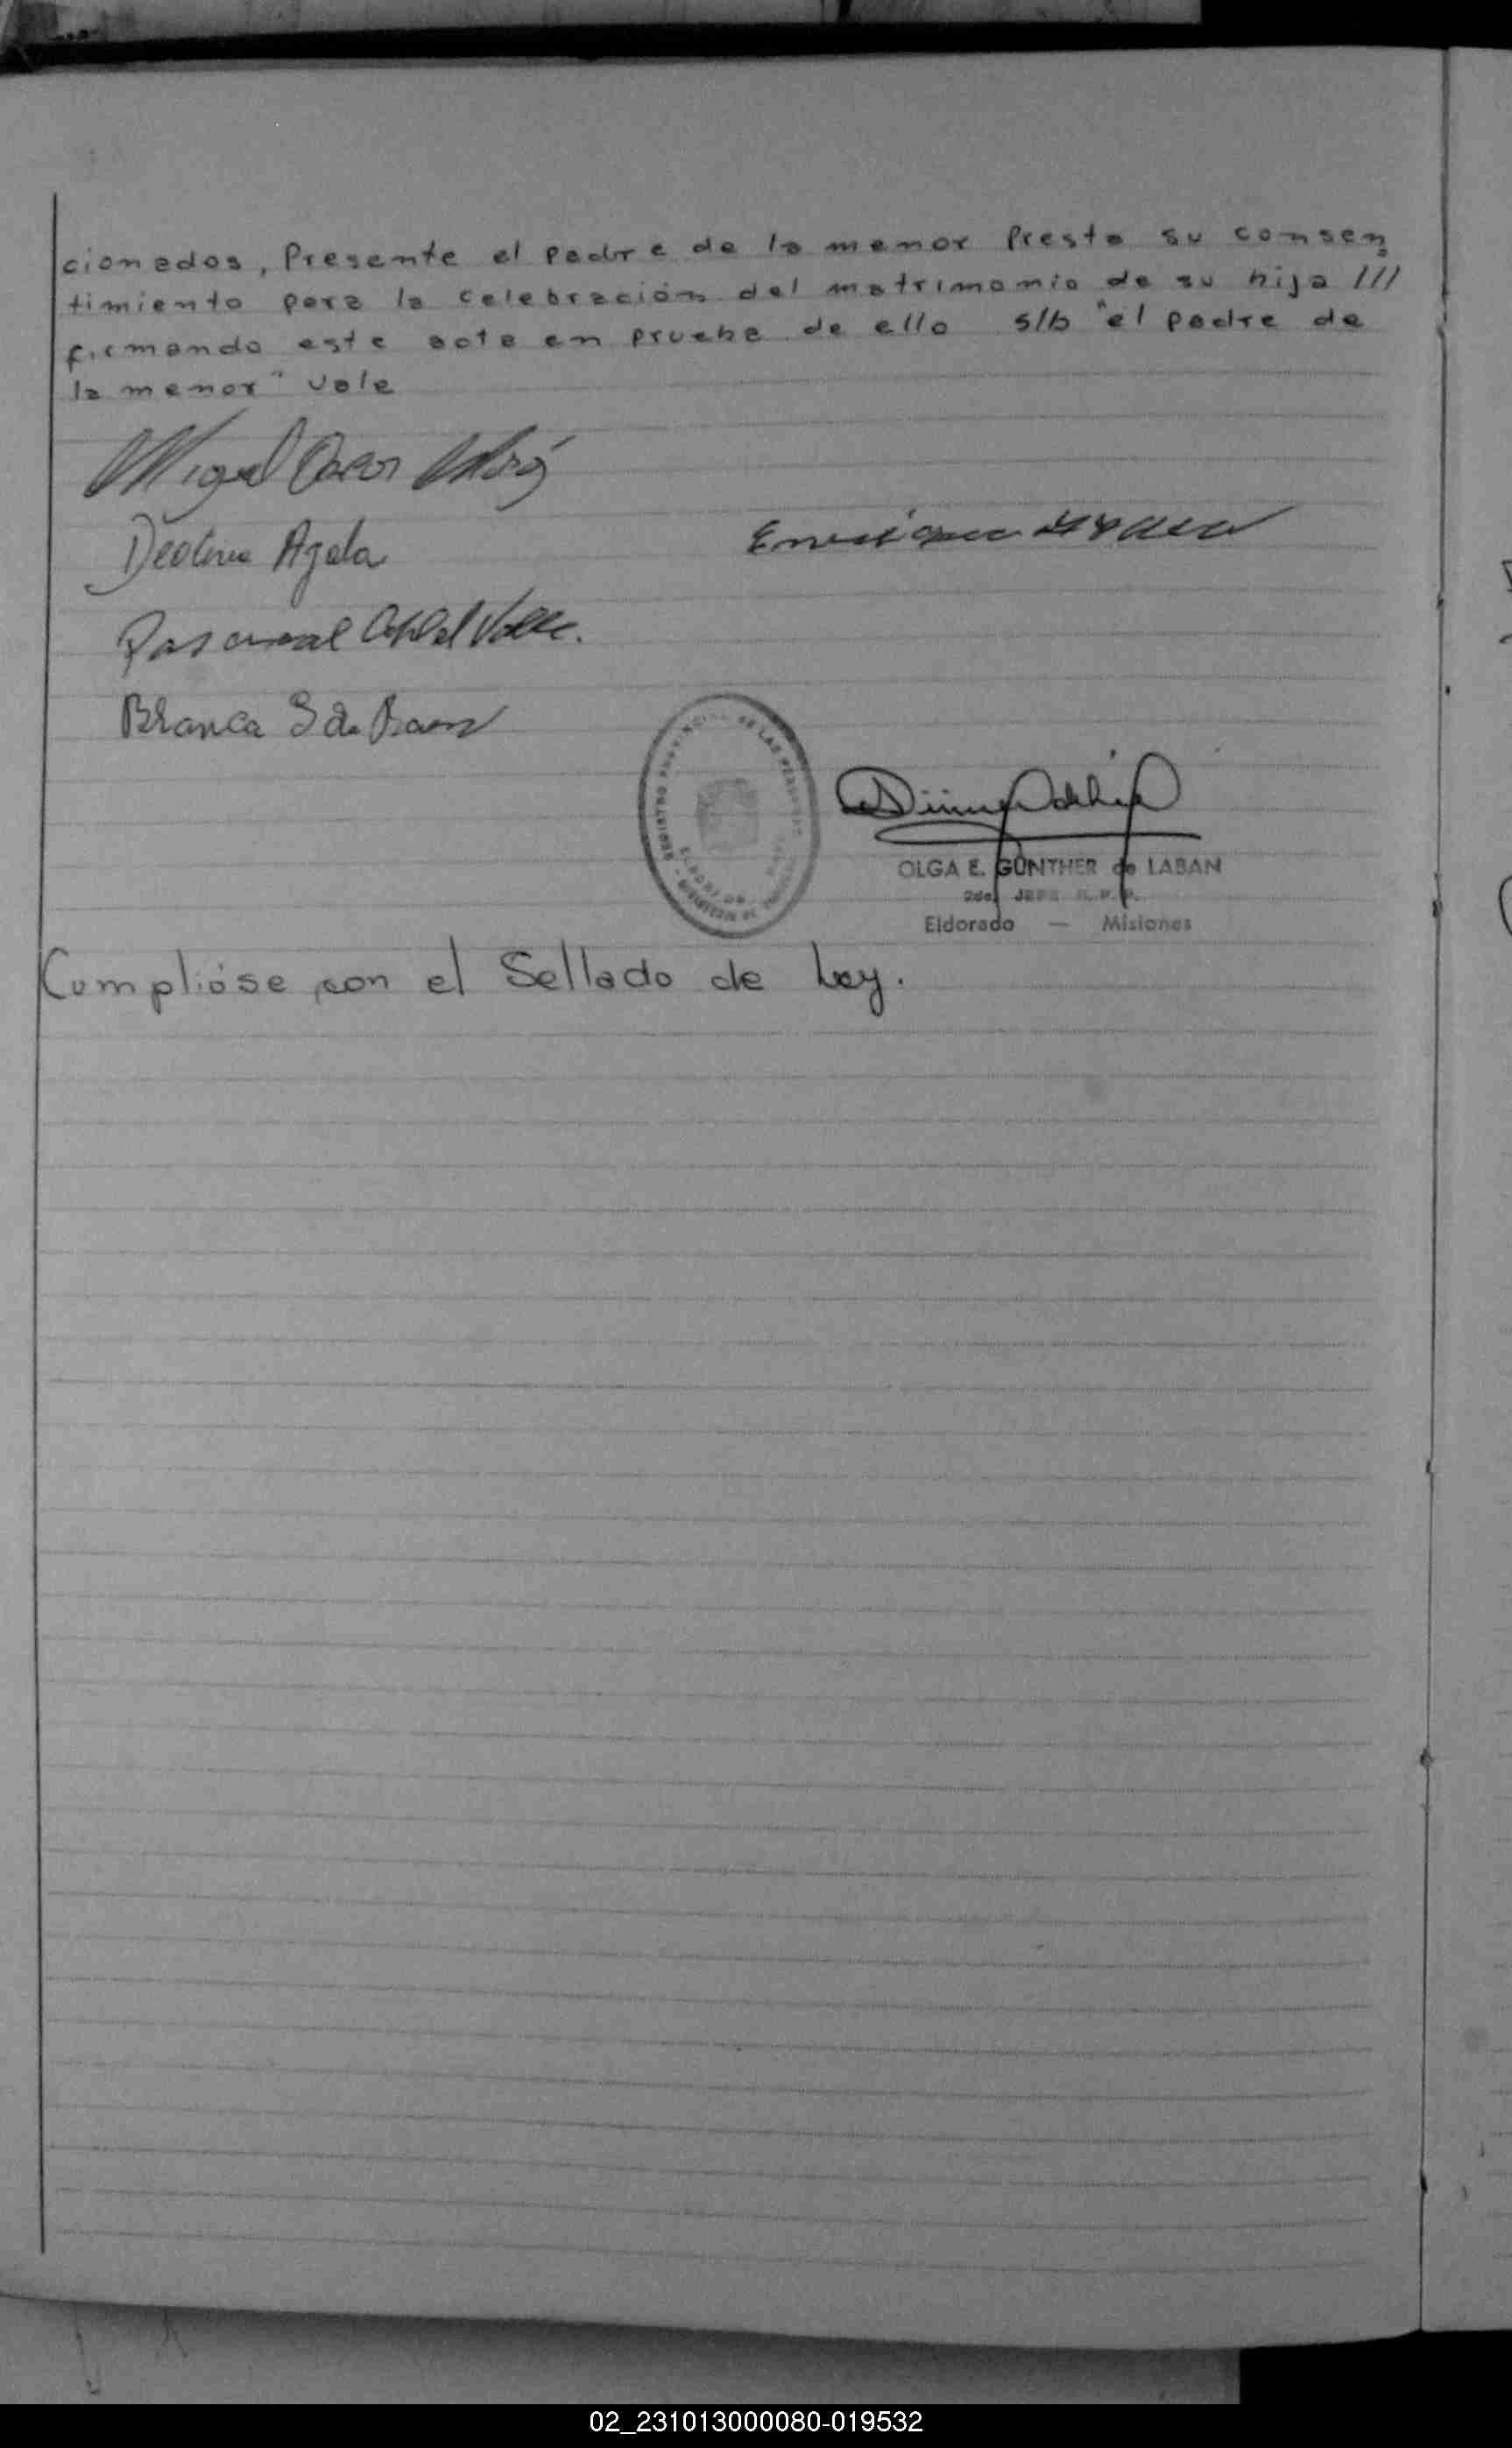 cionados, Presente el padre de la menor Presta su consen
timiento para la celebración del matrimonio de su hija ///
firmando este acta en prueba de ello s/b "el padre de
la menor" vale
Miguel Oscar
Deolina Ayala
Enrique
Pascual del Valle.
Blanca S de
REGISTRO PROVINCIAL DE LAS PERSONAS
OLGA E. GÜNTHER de LABAN
2do. JEFE R.P.P.
Eldorado — Misiones
Cumplióse con el Sellado de Ley.
02_231013000080-019532